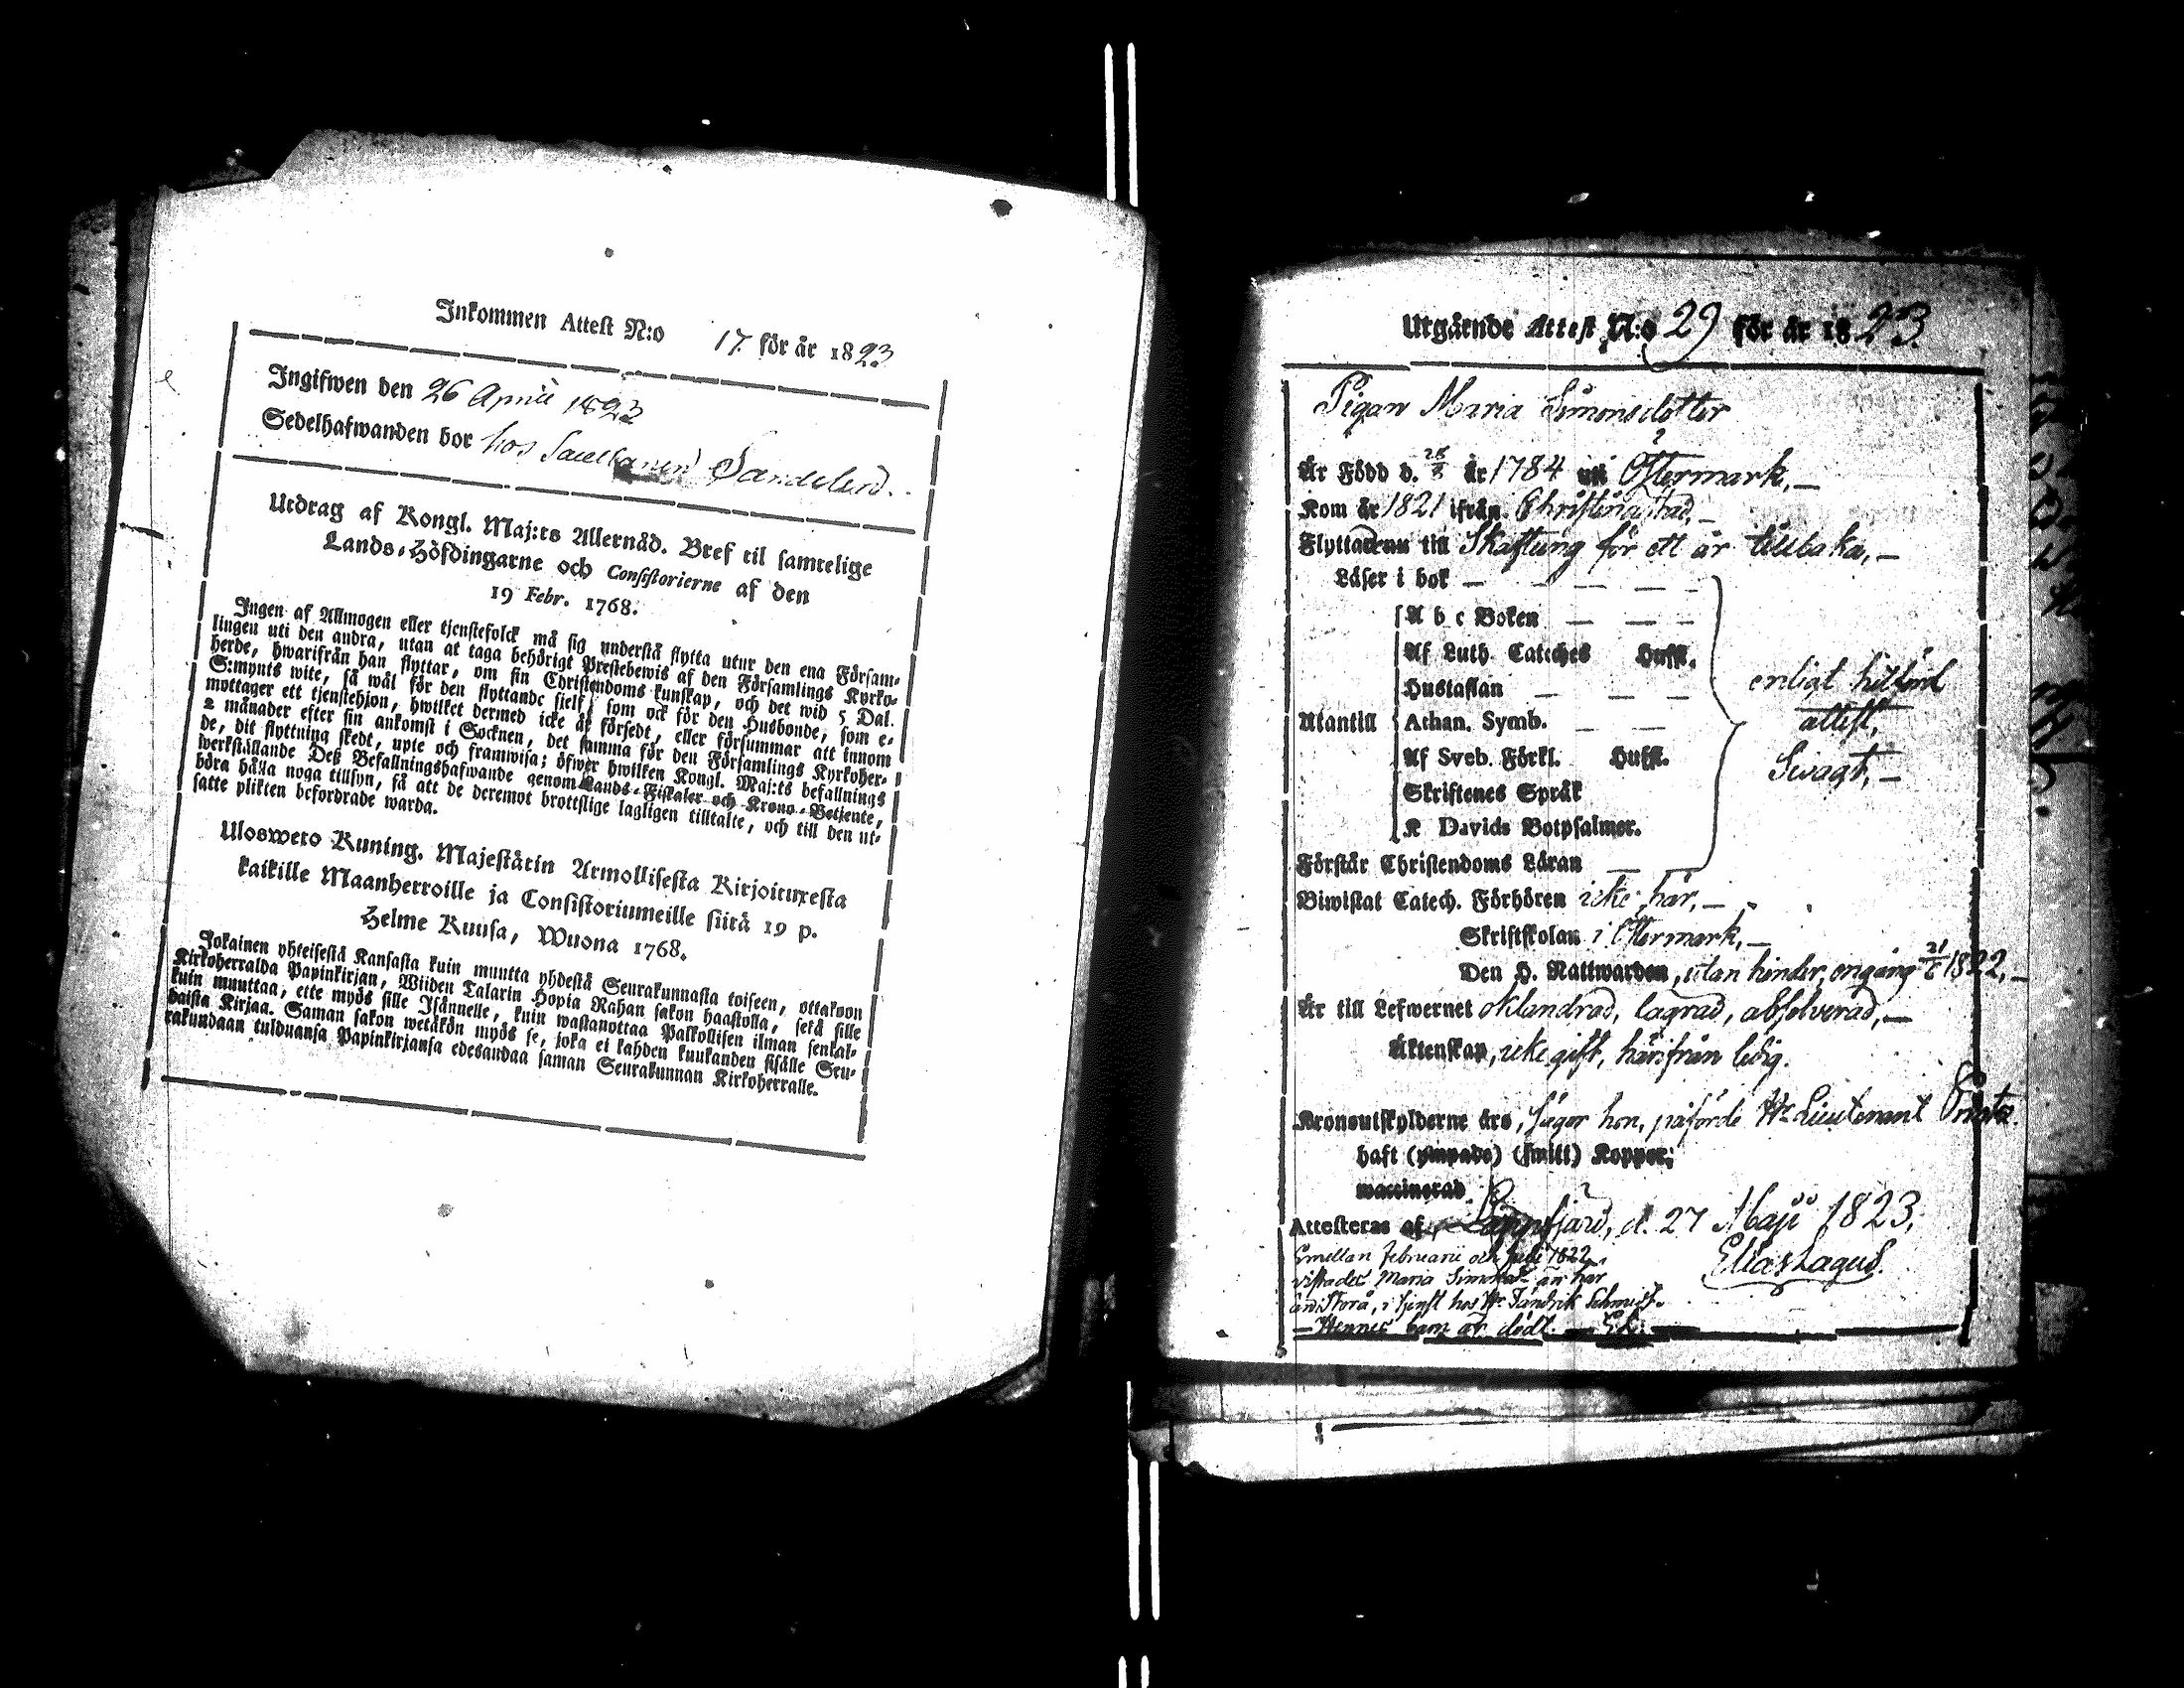 Inkommen Attest N:o 17. för år 1823
Ingifwen den 26 Aprill 1823
Sedelhafwanden bor hos Sandelin.
Utdrag af Kongl. Maj:ts Allernåd. Bref til samtelige
Lands-Höfdingarne och Consistorierne af den
19 Febr. 1768.
Ingen af Allmogen eller tjenstefolck må sig understå flytta utur den ena Försam-
lingen uti den andra, utan at taga behörigt Prestebewis af den Församlings Kyrko-
herde, hwarifrån han flyttar, om sin Christendoms kunskap, och det wid 5 Dal.
S:mynts wite, så wäl för den flyttande sjelf, som ock för den Husbonde, som e-
mottager ett tjenstehjon, hwilket dermed icke är försedt, eller försummar att innom
2 månader efter sin ankomst i Socknen, det samma för den Församlings Kyrkoher-
de, dit flyttning skedt, upte och framwisa; öfwer hwilken Kongl. Maj:ts befallnings
werkställande Deß Befallningshafwande genom Lands-Fiskaler och Krono-Betjente,
böra hålla noga tillsyn, så att de deremot brottslige lagligen tilltalte, och till den ut-
satte plikten befordrade warda.
Uloswero Kuning. Majestätin Armollisesta Kirjoituxesta
kaikille Maanherroille ja Consistoriumeille siitä 19 p.
Helme Kuusa, Wuona 1768.
Jokainen yhteisestä Kansasta kuin muutta yhdestä Seurakunnasta toiseen, ottakoon
Kirkoherralda Papinkirjan, Wiiden Talarin Hopia Rahan sakon haastolla, setä sille
kuin muuttaa, ette myös sille Isännelle, kuin wastanottaa Palkollisen ilman senkal-
daista Kirjaa. Saman sakon wetäkön myös se, joka ei kahden kuukanden sisälle Seu-
rakundaan tulduansa Papinkirjansa edesandaa saman Seurakunnan Kirkoherralle.
Utgårnde Attest N:o 29 för år 1823.
Pigan Maria Simonsdotter
Är Född d. 28/8 år 1784 uti Östermark,—
Kom år 1821 ifrån Christinæstad,—
Flyttar till Skaftung för ett år tillbaka,—
Läser i bok — — — —
A b c Boken — — —
Af Luth. Cateches Hufst.
Hustaflan — — — —
Utantill Athan. Symb. — —
Af Sveb. Förkl. Hufst.
Skriftenes Språk
K Davids Botpsalmer.
Förstår Christendoms Läran —
enligt hitförd
attest,
Svagt,—
Biwistat Catech. Förhören icke här,—
Skriftskolan i Östermark,—
Den H. Nattwarden, utan hinder, en gång 21/6 1822,—
Är till Lefwernet oklandrad, lagrad, absolverad,—
Äktenskap, icke gift, härifrån ledig.
Kronoutskylderne äro, säger hon, påförde Hr Lieutenant
haft (ympade) (smitt) Koppor;
waccinerad
Attesteras af Lappfjärd, d. 27 Maji 1823,
Elias Lagus.
Emellan Februarii och Julii 1822
vistades Maria Simonsd. än här
än i Storå, i tjenst hos Hr Fändrik Schmidt.
— Hennes barn är dödt. — EL.